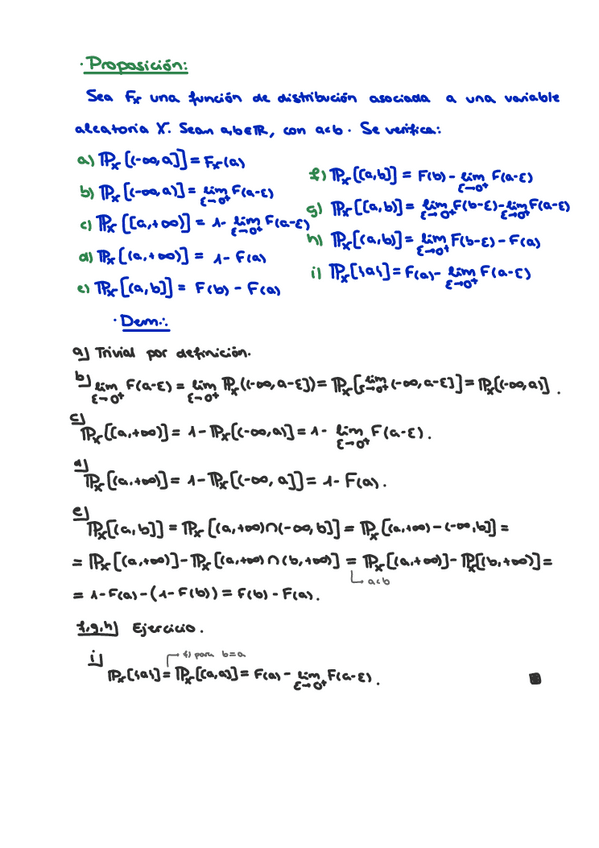 · Proposición:
Sea Fx una función de distribución asociada a una variable
aleatoria X. Sean a,b∈ℝ, con a<b. Se verifica:
a) ℙx[(-∞,a]] = Fx(a)
b) ℙx[(-∞,a)] = lim ε→0⁺ F(a-ε)
c) ℙx[[a,+∞)] = 1- lim ε→0⁺ F(a-ε)
d) ℙx[(a,+∞)] = 1- F(a)
e) ℙx[(a,b]] = F(b) - F(a)
f) ℙx[[a,b]] = F(b) - lim ε→0⁺ F(a-ε)
g) ℙx[[a,b)] = lim ε→0⁺ F(b-ε) - lim ε→0⁺ F(a-ε)
h) ℙx[(a,b)] = lim ε→0⁺ F(b-ε) - F(a)
i) ℙx[{a}] = F(a) - lim ε→0⁺ F(a-ε)
· Dem.:
a) Trivial por definición.
b) lim ε→0⁺ F(a-ε) = lim ε→0⁺ ℙx((-∞,a-ε]) = ℙx[lim ε→0⁺ (-∞,a-ε]] = ℙx[(-∞,a)] .
c) ℙx[[a,+∞)] = 1- ℙx[(-∞,a)] = 1- lim ε→0⁺ F(a-ε).
d) ℙx[(a,+∞)] = 1- ℙx[(-∞, a]] = 1- F(a).
e) ℙx[(a,b]] = ℙx[(a,+∞)∩(-∞,b]] = ℙx[(a,+∞) - (-∞,b]] =
= ℙx[(a,+∞)] - ℙx[(a,+∞)∩(b,+∞)] = ℙx[(a,+∞)] - ℙx[(b,+∞)] =
a<b
= 1-F(a) - (1-F(b)) = F(b) - F(a).
f,g,h) Ejercicio.
f) para b=a
i) ℙx[{a}] = ℙx[[a,a]] = F(a) - lim ε→0⁺ F(a-ε) . ■